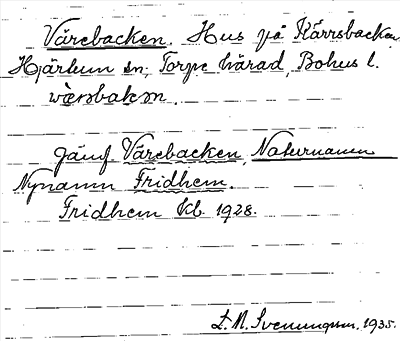 Vårebacken. Hus på Kärrsbacken
Hjärtum sn, Torpe härad, Bohus l.
Jämf Vårebacken, Naturnamn
Nynamn Fridhem.
Fridhem kb. 1928.
L. M. Svenungsson, 1935.